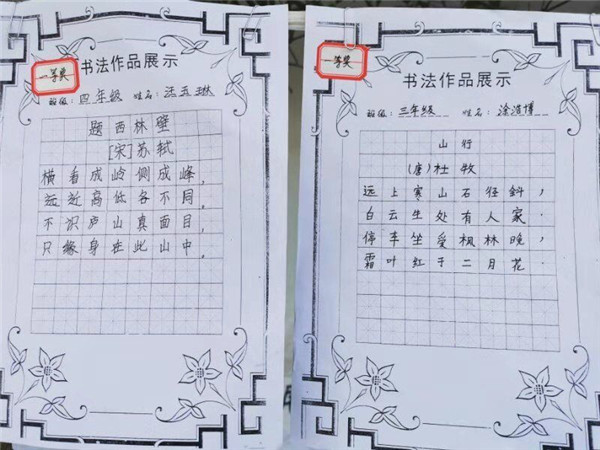 一等奖
书法作品展示
班级：四年级 姓名：
题西林壁
[宋]苏轼
横看成岭侧成峰，
远近高低各不同，
不识庐山真面目，
只缘身在此山中，
一等奖
书法作品展示
班级：三年级 姓名：
山行
(唐)杜牧
远上寒山石径斜，
白云生处有人家.
停车坐爱枫林晚，
霜叶红于二月花.